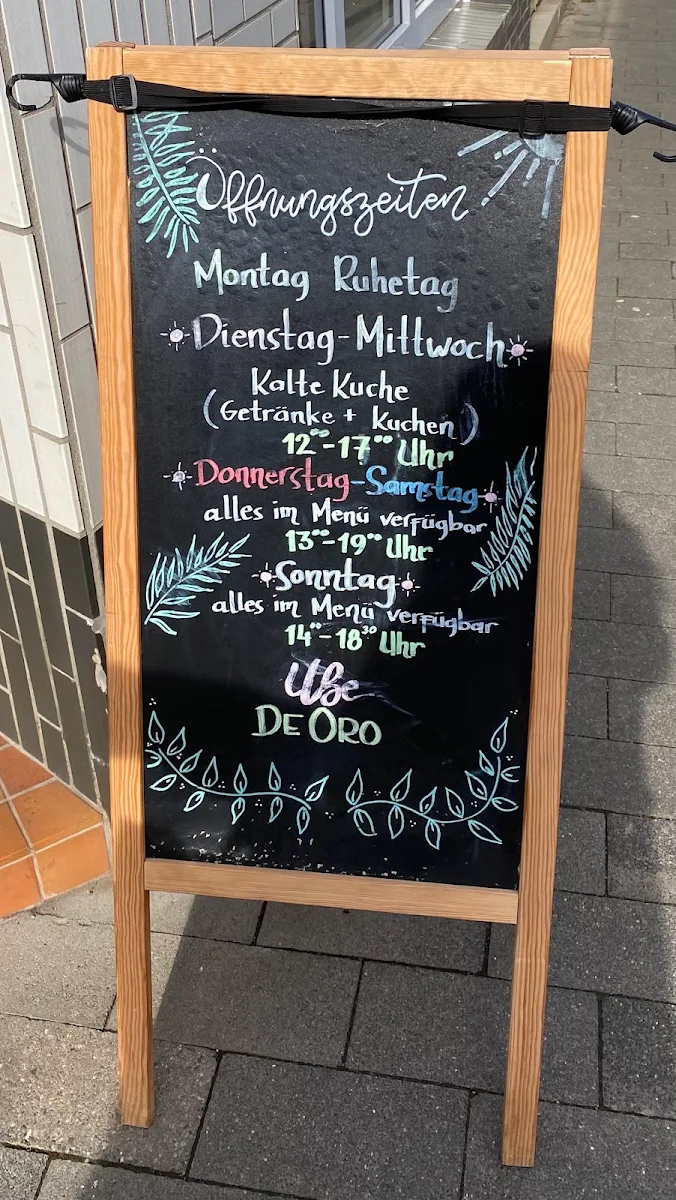 Öffnungszeiten
Montag Ruhetag
Dienstag-Mittwoch
Kalte Küche
(Getränke + Kuchen)
12°°-17°° Uhr
Donnerstag-Samstag
alles im Menü verfügbar
13°°-19°° Uhr
Sonntag
alles im Menü verfügbar
14°°-18³⁰ Uhr
Ube
DE ORO